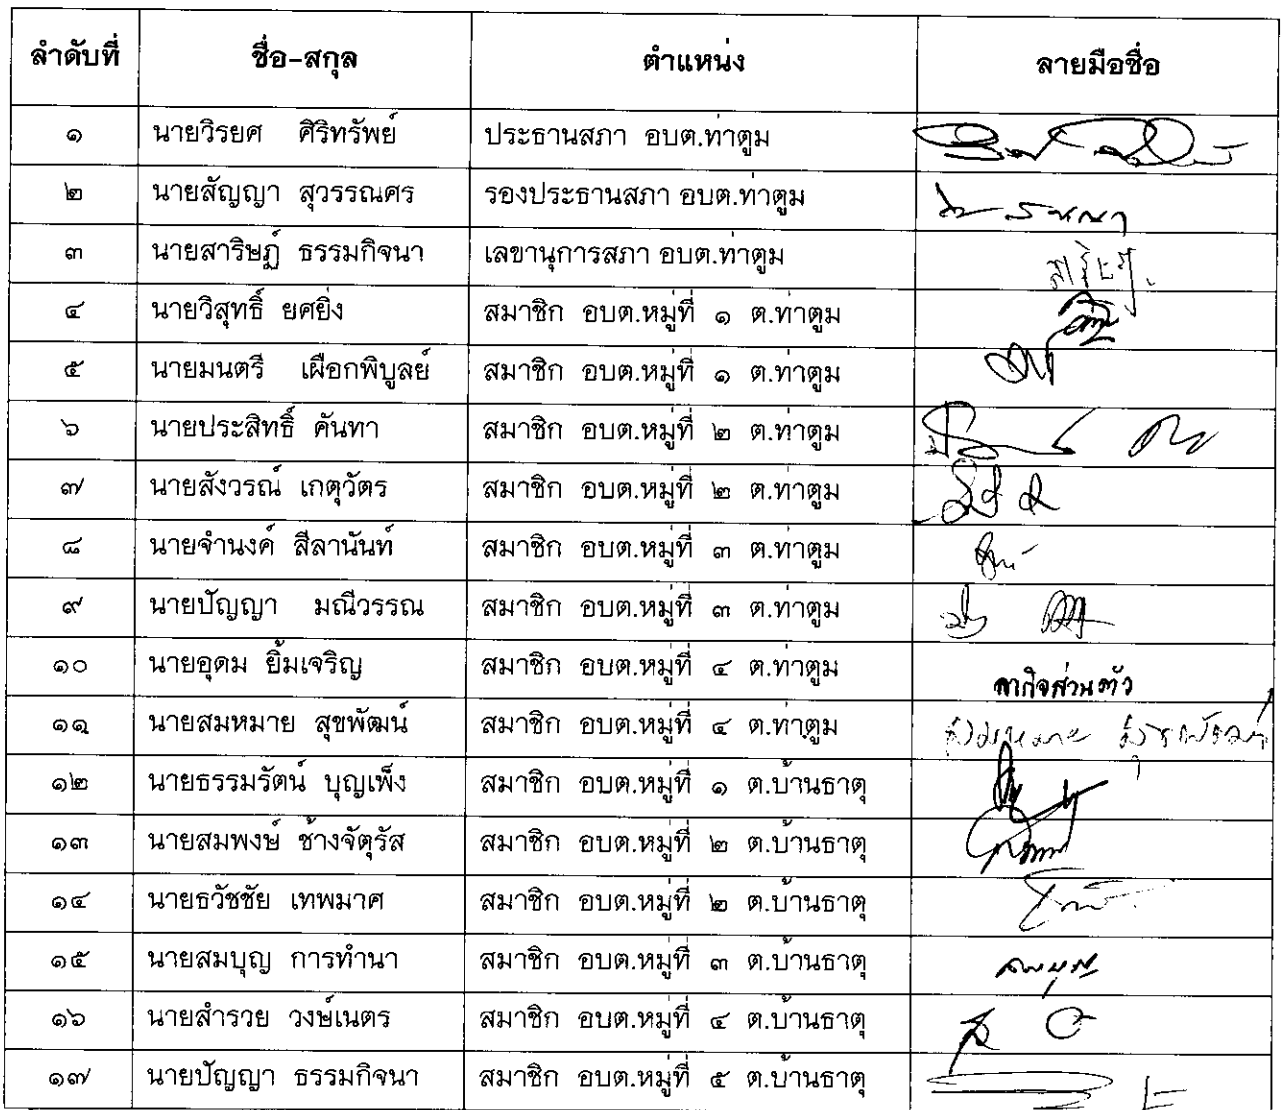 ลำดับที่ ชื่อ-สกุล ตำแหน่ง ลายมือชื่อ
๑ นายวิรยศ ศิริทรัพย์ ประธานสภา อบต.ท่าตูม
๒ นายสัญญา สุวรรณศร รองประธานสภา อบต.ท่าตูม
๓ นายสาริษฏ์ ธรรมกิจนา เลขานุการสภา อบต.ท่าตูม
๔ นายวิสุทธิ์ ยศยิ่ง สมาชิก อบต.หมู่ที่ ๑ ต.ท่าตูม
๕ นายมนตรี เผือกพิบูลย์ สมาชิก อบต.หมู่ที่ ๑ ต.ท่าตูม
๖ นายประสิทธิ์ คันทา สมาชิก อบต.หมู่ที่ ๒ ต.ท่าตูม
๗ นายสังวรณ์ เกตุวัตร สมาชิก อบต.หมู่ที่ ๒ ต.ท่าตูม
๘ นายจำนงค์ สีลานันท์ สมาชิก อบต.หมู่ที่ ๓ ต.ท่าตูม
๙ นายปัญญา มณีวรรณ สมาชิก อบต.หมู่ที่ ๓ ต.ท่าตูม
๑๐ นายอุดม ยิ้มเจริญ สมาชิก อบต.หมู่ที่ ๔ ต.ท่าตูม ลากิจส่วนตัว
๑๑ นายสมหมาย สุขพัฒน์ สมาชิก อบต.หมู่ที่ ๔ ต.ท่าตูม สมหมาย สุขพัฒน์
๑๒ นายธรรมรัตน์ บุญเพ็ง สมาชิก อบต.หมู่ที่ ๑ ต.บ้านธาตุ
๑๓ นายสมพงษ์ ช้างจัตุรัส สมาชิก อบต.หมู่ที่ ๒ ต.บ้านธาตุ
๑๔ นายธวัชชัย เทพมาศ สมาชิก อบต.หมู่ที่ ๒ ต.บ้านธาตุ
๑๕ นายสมบุญ การทำนา สมาชิก อบต.หมู่ที่ ๓ ต.บ้านธาตุ สมบุญ
๑๖ นายสำรวย วงษ์เนตร สมาชิก อบต.หมู่ที่ ๔ ต.บ้านธาตุ
๑๗ นายปัญญา ธรรมกิจนา สมาชิก อบต.หมู่ที่ ๕ ต.บ้านธาตุ